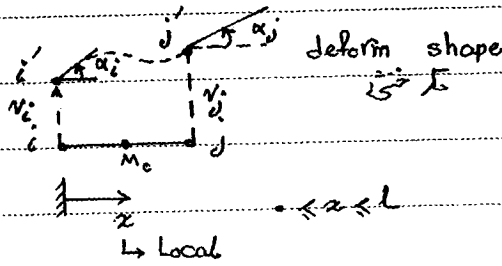 i' αᵢ j' αⱼ deform shape
vᵢ vⱼ
i Mc j
x
↳ Local